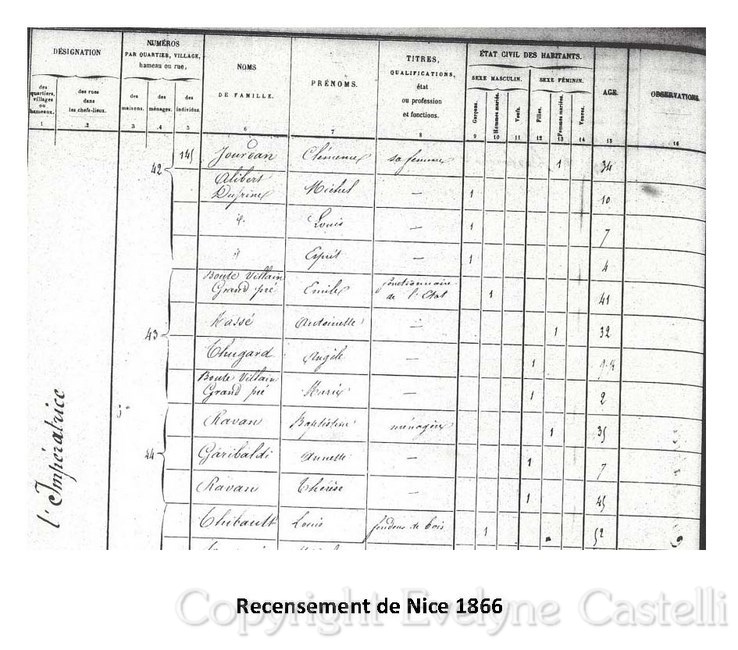 DÉSIGNATION
NUMÉROS
PAR QUARTIER, VILLAGE,
hameau ou rue,
NOMS
DE FAMILLE.
PRÉNOMS.
TITRES,
QUALIFICATIONS,
état
ou profession
et fonctions.
ÉTAT CIVIL DES HABITANTS.
SEXE MASCULIN.
SEXE FÉMININ.
AGE.
OBSERVATIONS
des
quartiers,
villages
ou
hameaux.
des rues
dans
les chefs-lieux.
des
maisons.
des
ménages.
des
individus.
Garçons.
Hommes mariés.
Veufs.
Filles.
Femmes mariées.
Veuves.
1 2 3 4 5 6 7 8 9 10 11 12 13 14 15 16
l'Impératrice
42 145 Jourdan sa femme 1 34
Alibert
Michel — 1 10
Louis — 1 7
Esprit — 1 4
Boute Villain
Grand pré Emile fonctionnaire
de l'Etat 1 41
43 Massé Antoinette — 1 32
Angèle — 1
Boute Villain
Grand pré Marie — 1 2
Ravan Baptistine ménagère 1 35
44 Garibaldi Annette — 1 7
Ravan Thérèse — 1 45
Thibault Louis fendeur de bois 1 52
Recensement de Nice 1866
Copyright Evelyne Castelli